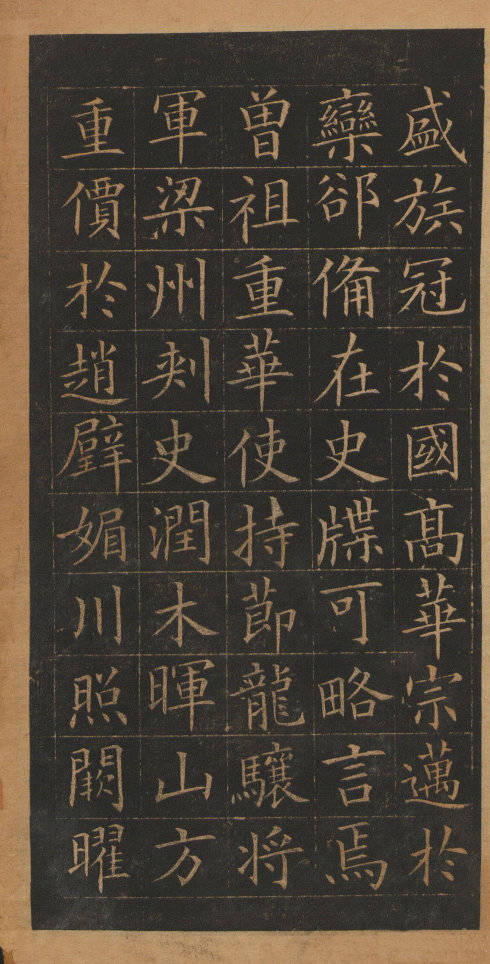 盛族冠於國高華宗邁於
欒郤備在史牒可略言焉
曾祖重華使持節龍驤将
軍梁州刾史潤木暉山方
重價於趙璧媚川照闕曜